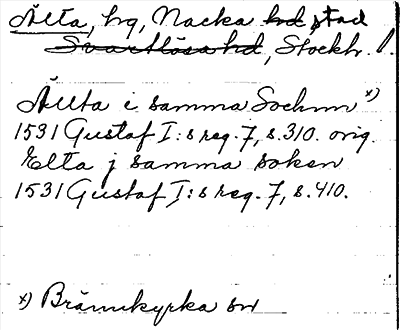 Älta, by, Nacka hd stad
Svartlösa hd, Stockh. l.
Ällta i samma Sochnn x)
1531 Gustaf I:s reg. 7, s. 310. orig.
Elta j samma soken
1531 Gustaf I:s reg. 7, s. 410.
x) Brännkyrka sn